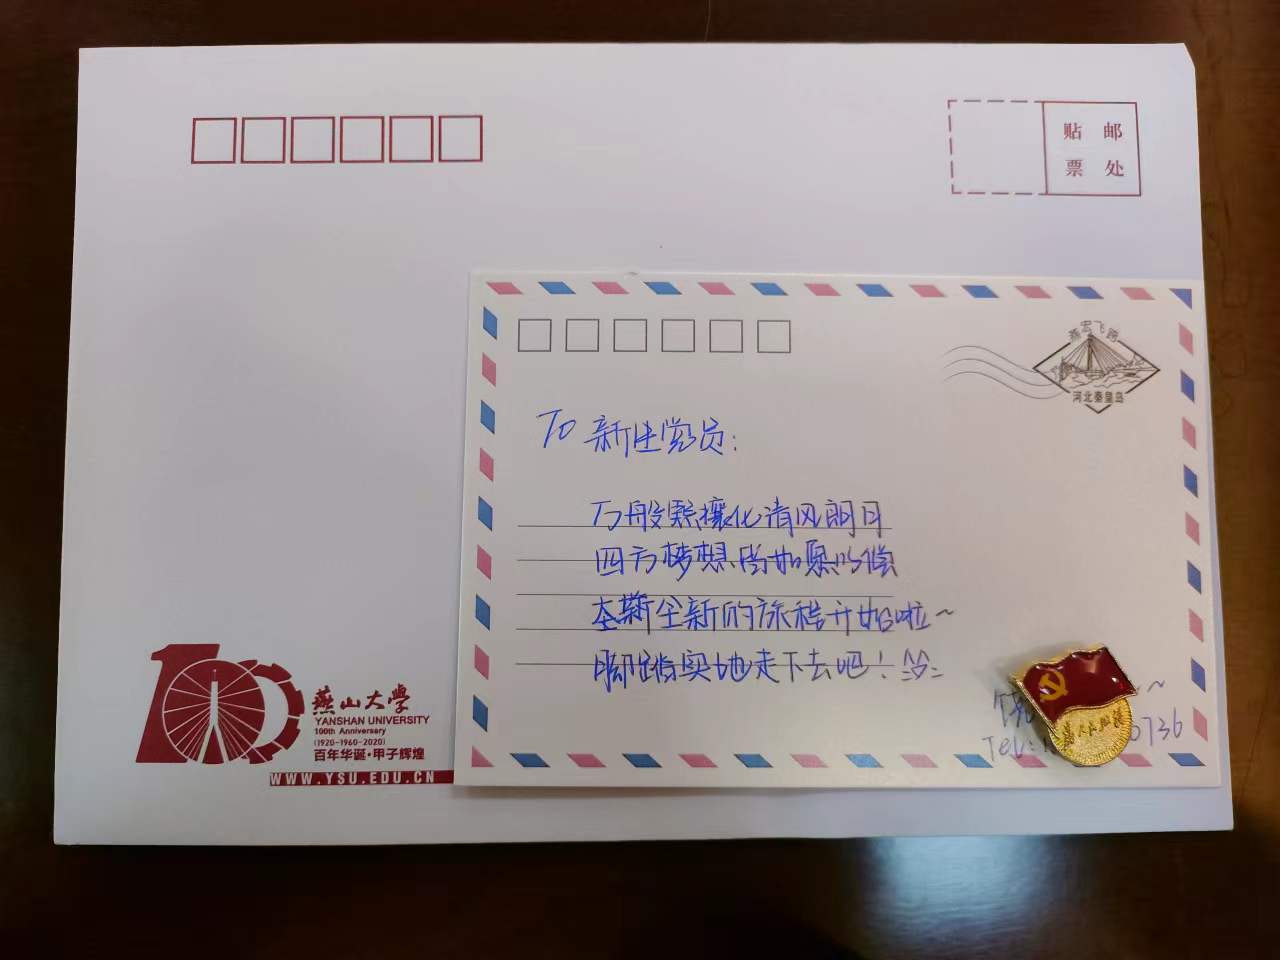 贴 邮
票 处
燕宏飞跨
河北秦皇岛
To 新生党员:
万般熙攘化清风朗月
四方梦想皆如愿以偿
全新的旅程开始啦~
脚踏实地走下去吧!
~
Tel:1
0736
为人民服务
100
燕山大学
YANSHAN UNIVERSITY
100th Anniversary
(1920-1960-2020)
百年华诞·甲子辉煌
WWW.YSU.EDU.CN